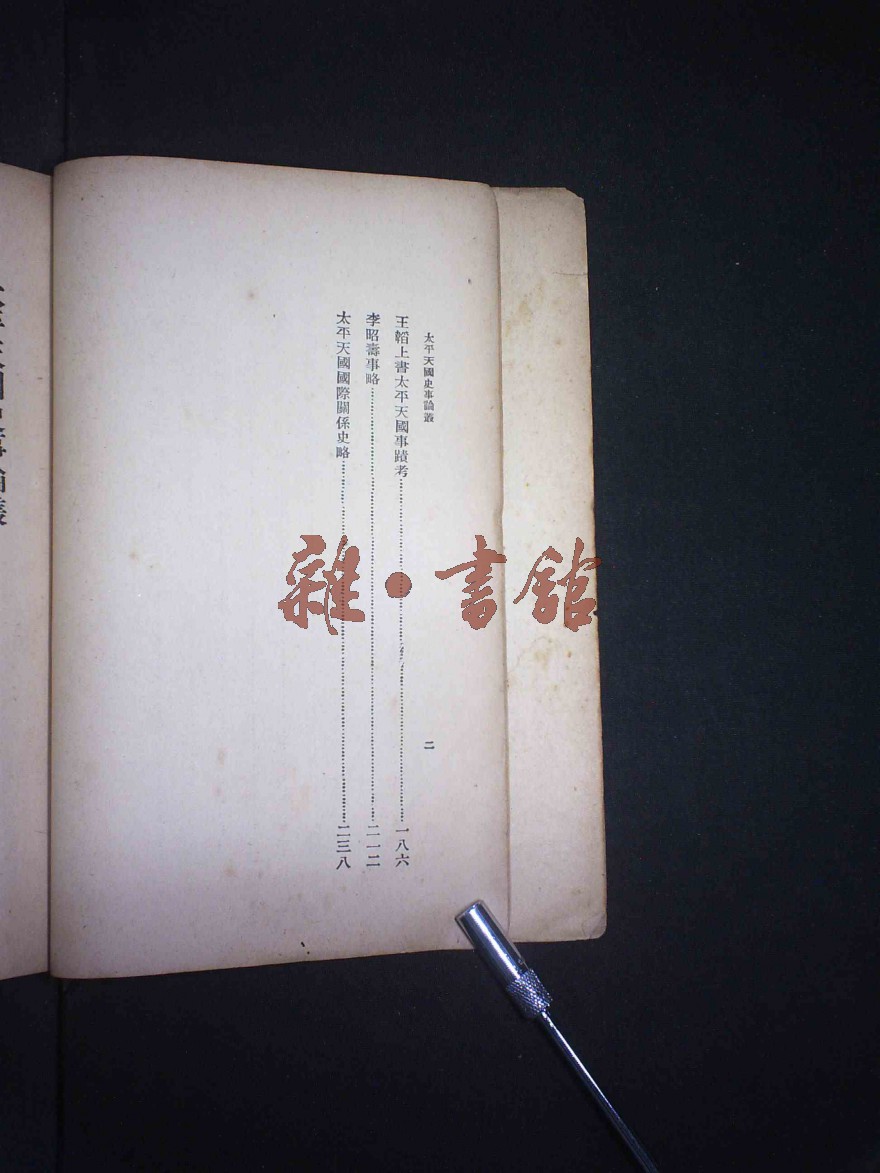 太平天國史事論叢
二
王韜上書太平天國事蹟考……一八六
李昭壽事略……二一二
太平天國國際關係史略……二三八
雜·書館